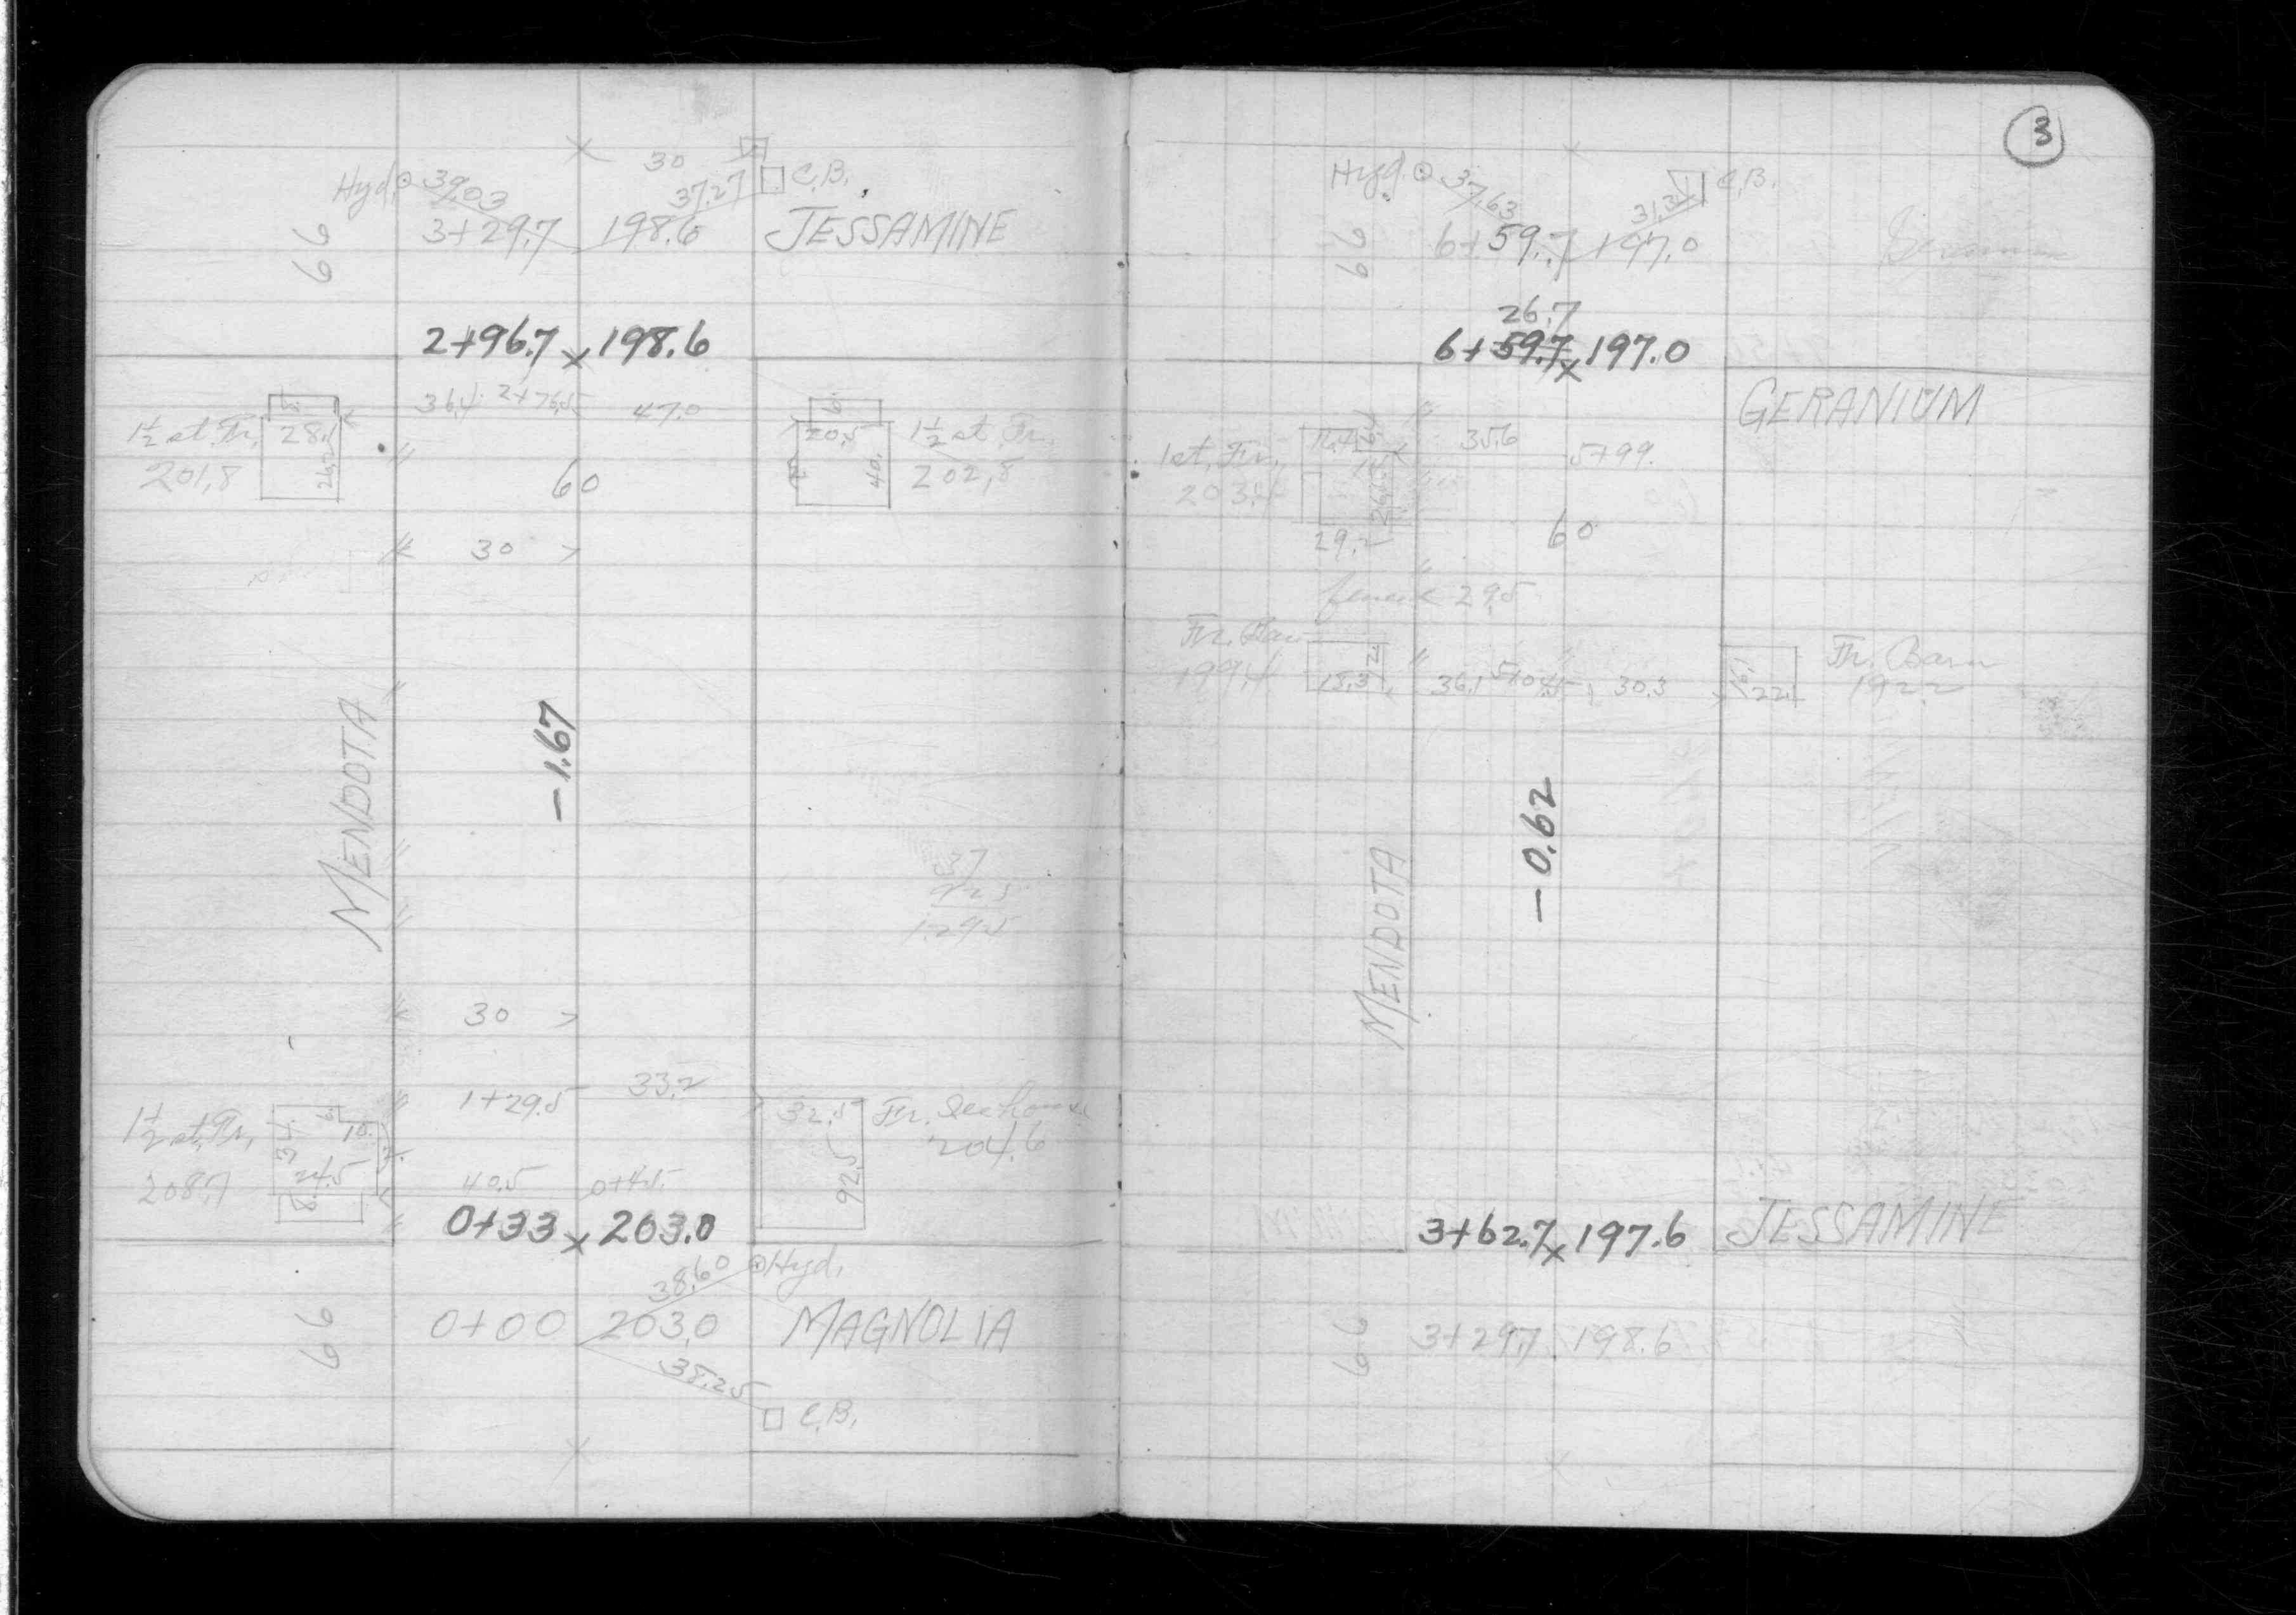 3
30
Hyd. 39.03 37.27 C.B.
66 3+29.7 198.6 JESSAMINE
2+96.7 x 198.6
36.4 2+76.5 47.0
1½ st. Fr. 28.1 20.5 1½ st. Fr.
201.8 26.2 40. 202.8
60
30
MENDOTA
-1.67
37
92.5
129.5
30
1+29.5 33.2
1½ st. Fr. 34.1 6. 10. 32.5 Fr. Icehouse
208.7 24.5 8. 92.5 204.6
40.5 0+45.
0+33 x 203.0
38.60 Hyd.
66 0+00 203.0 MAGNOLIA
38.25
C.B.
Hyd. 37.63 31.31 C.B.
66 6+59.7 197.0
26.7
6+59.7 x 197.0
GERANIUM
35.6 5+99.
1 st. Fr.
203.4 26.8
29.2 60
fence 29.5
Fr. Barn Fr. Barn
199.4 18.3 36.1 30.3 22. 192.2
MENDOTA
-0.62
3+62.7 x 197.6 JESSAMINE
66 3+29.7 198.6